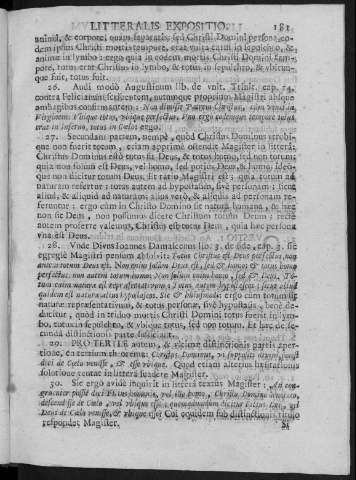 LITTERALIS EXPOSITIO. 181
animâ, & corpore, quam separatis: sed Christi Domini persona eo-
dem ipsius Christi mortis tempore, erat vnita carni in sepulchro, &
animæ in lymbo: ergo quia in eodem mortis Christi Domini tem-
pore, totus erat Christus in lymbo, & totus in sepulchro, & vbicun-
que fuit, totus fuit.
26. Audi modò Augustinum lib. de vnit. Trinit. cap. 14.
contra Felicianum scribentem, nostrumque proprium Magistri absque
ambagibus confirmantem: Non dimisit Patrem Christus, cum venit in
Virginem: Vbique totus, vbique perfectus. Vno ergo eodemque tempore totus
erat in Inferno, totus in Cœlo: ergo.
27. Secundam partem, nempè, quòd Christus Dominus vtrobi-
que non fuerit totum, etiam apprimè ostendit Magister in litterâ:
Christus Dominus est totus Deus, & totus homo, sed non totum:
quia non solùm est Deus, vel homo, sed potiùs Deus, & homo: Ideo-
que non dicitur totum Deus. Et ratio Magistri est: quia totum ad
naturam refertur: totus autem ad hypostasim, sivè personam: sicut
aliud, & aliquid ad naturam; alius verò, & aliquis ad personam re-
feruntur: ergo cùm in Christo Domino sit natura humana, & hæc
non sit Deus, non possumus dicere Christum totum Deum: rectè
autem proferre valemus, Christus est totus Deus, quia hæc persona
vna est Deus.
28. Vnde Divus Ioannes Damascenus lib. 3. de fide, cap. 7. sic
egregiè Magistri pensum absolvit: Totus Christus est Deus perfectus, non
autem totum Deus est. Non enim solùm Deus est, sed & homo: & totus homo
perfectus: non autem totum homo: Non solùm enim homo, sed & Deus. To-
tum enim naturæ est repræsentativum: Totus autem hypostasis: sicut aliud
quidem est naturæ: alius hypostasis. Sic & huiusmodi: ergo cùm totum sit
naturæ repræsentativum, & totus personæ, sivè hypostasis, benè de-
ducitur, quòd in triduo mortis Christi Domini totus fuerit in lym-
bo, totus in sepulchro, & vbique totus, sed non totum. Et hæc de se-
cundâ distinctionis parte sufficiant.
29. PRO TERTIÆ autem, & vltimæ distinctionis partis aper-
tione, en tertium theorema: Christus Dominus, vt in sepulchro
dici de Cœlo venisse, & esse vbique. Quod etiam alterius
solutione tentat in litterâ suadere Magister.
30. Sic ergo aviûs inquirit in litterâ textus Magister: An con-
gruenter possit dici Filius hominis, vel ille homo, Christus
descendisse de Cœlo, vel vbique esse; quemadmodum dicitur Filius Dei, vel
Deus de Cœlo venisse, & vbique esse? Cui eiusdem sub distinctionis titulo
respondet Magister.
Si